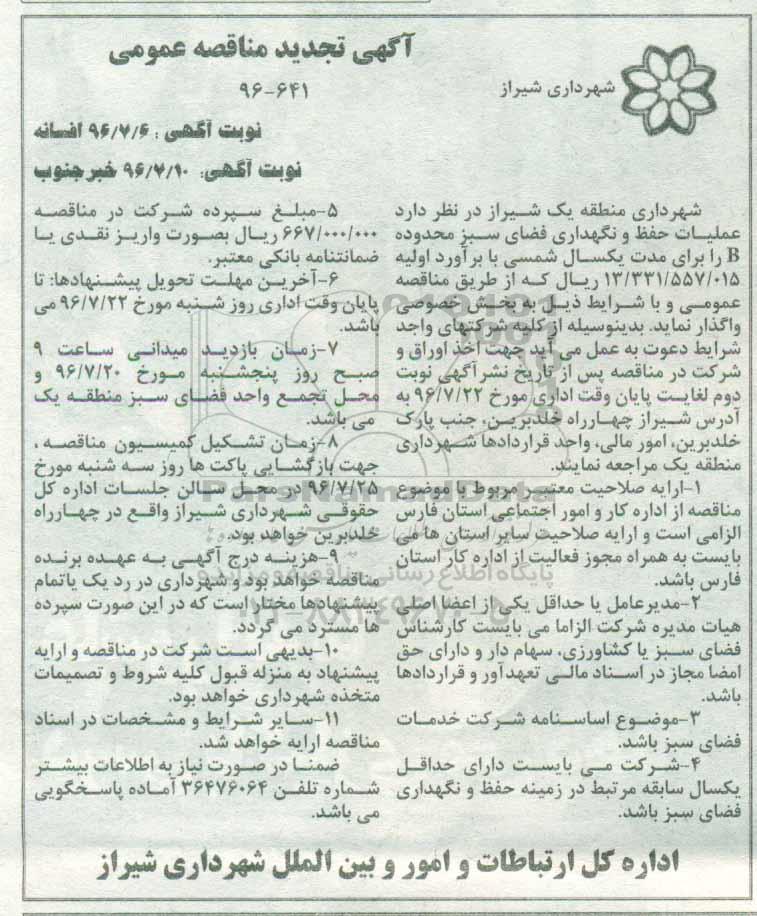 آگهی تجدید مناقصه عمومی
۹۶-۶۴۱
شهرداری شیراز
نوبت آگهی : ۹۶/۷/۶ افسانه
نوبت آگهی: ۹۶/۷/۱۰ خبر جنوب
شهرداری منطقه یک شیراز در نظر دارد
عملیات حفظ و نگهداری فضای سبز محدوده
B را برای مدت یکسال شمسی با برآورد اولیه
۱۳/۳۳۱/۵۵۷/۰۱۵ ریال که از طریق مناقصه
عمومی و با شرایط ذیل به بخش خصوصی
واگذار نماید. بدینوسیله از کلیه شرکتهای واجد
شرایط دعوت به عمل می آید جهت اخذ اوراق و
شرکت در مناقصه پس از تاریخ نشر آگهی نوبت
دوم لغایت پایان وقت اداری مورخ ۹۶/۷/۲۲ به
آدرس شیراز چهارراه خلدبرین، جنب پارک
خلدبرین، امور مالی، واحد قراردادها شهرداری
منطقه یک مراجعه نمایند.
۱-ارایه صلاحیت معتبر مربوط با موضوع
مناقصه از اداره کار و امور اجتماعی استان فارس
الزامی است و ارایه صلاحیت سایر استان ها می
بایست به همراه مجوز فعالیت از اداره کار استان
فارس باشد.
۲-مدیرعامل یا حداقل یکی از اعضا اصلی
هیات مدیره شرکت الزاما می بایست کارشناس
فضای سبز یا کشاورزی، سهام دار و دارای حق
امضا مجاز در اسناد مالی تعهدآور و قراردادها
باشد.
۳-موضوع اساسنامه شرکت خدمات
فضای سبز باشد.
۴-شرکت می بایست دارای حداقل
یکسال سابقه مرتبط در زمینه حفظ و نگهداری
فضای سبز باشد.
۵-مبلغ سپرده شرکت در مناقصه
۶۶۷/۰۰۰/۰۰۰ ریال بصورت واریز نقدی یا
ضمانتنامه بانکی معتبر.
۶-آخرین مهلت تحویل پیشنهادها: تا
پایان وقت اداری روز شنبه مورخ ۹۶/۷/۲۲ می
باشد.
۷-زمان بازدید میدانی ساعت ۹
صبح روز پنجشنبه مورخ ۹۶/۷/۲۰ و
محل تجمع واحد فضای سبز منطقه یک
می باشد.
۸-زمان تشکیل کمیسیون مناقصه ،
جهت بازگشایی پاکت ها روز سه شنبه مورخ
۹۶/۷/۲۵ در محل سالن جلسات اداره کل
حقوقی شهرداری شیراز واقع در چهارراه
خلدبرین خواهد بود.
۹-هزینه درج آگهی به عهده برنده
مناقصه خواهد بود و شهرداری در رد یک یا تمام
پیشنهادها مختار است که در این صورت سپرده
ها مسترد می گردد.
۱۰-بدیهی است شرکت در مناقصه و ارایه
پیشنهاد به منزله قبول کلیه شروط و تصمیمات
متخذه شهرداری خواهد بود.
۱۱-سایر شرایط و مشخصات در اسناد
مناقصه ارایه خواهد شد.
ضمنا در صورت نیاز به اطلاعات بیشتر
شماره تلفن ۳۶۴۷۶۰۶۴ آماده پاسخگویی
می باشد.
اداره کل ارتباطات و امور و بین الملل شهرداری شیراز
ParsNamadData
پایگاه اطلاع رسانی مناقصه و مزایده